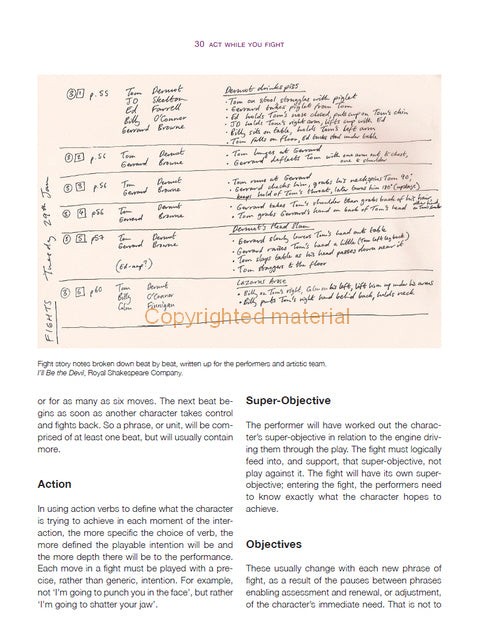 30 ACT WHILE YOU FIGHT
FIGHTS Tuesday 29th Jan
③ 1 p.55 Tom Dermot
JO Skelton
Ed Farrell
Billy O'Connor
Gerrard Browne
Dermot drinks piss
• Tom on stool struggles with piglet
• Gerrard takes piglet from Tom
• Ed holds Tom's nose closed, puts cup on Tom's chin
• JO holds Tom's right arm, lifts cup with Ed
• Billy sits on table, holds Tom's left arm
• Tom falls on floor, Ed kicks stool under table
③ 2 p.56 Tom Dermot
Gerrard Browne
• Tom lunges at Gerrard
• Gerrard deflects Tom with one arm out to chest,
one to shoulder
③ 3 p.56 Tom Dermot
Gerrard Browne
• Tom runs at Gerrard
• Gerrard checks him, grabs his neck, spins Tom 90°,
keeps hold of Tom's throat, later turns him 180° (upstage)
③ 4 p56 Tom Dermot
Gerrard Browne
• Gerrard takes Tom's shoulder then grabs back of his hair,
• Tom grabs Gerrard's hand on back of Tom's head
③ 5 p57 Tom Dermot
Gerrard Browne
(Ed-amp?)
Dermot's Head Slam
• Gerrard slowly lowers Tom's head onto table
• Gerrard raises Tom's head a little (Tom left leg back)
• Tom slaps table as his head passes down near it
• Tom staggers to the floor
③ 6 p60 Tom Dermot
Billy O'Connor
Colm Finnigan
Lazarus Arose
• Billy on Tom's right, Colm on his left, lift him up under his arms
• Billy puts Tom's right hand behind back, holds neck
Copyrighted material
Fight story notes broken down beat by beat, written up for the performers and artistic team.
I'll Be the Devil, Royal Shakespeare Company.
or for as many as six moves. The next beat be-
gins as soon as another character takes control
and fights back. So a phrase, or unit, will be com-
prised of at least one beat, but will usually contain
more.
Action
In using action verbs to define what the character
is trying to achieve in each moment of the inter-
action, the more specific the choice of verb, the
more defined the playable intention will be and
the more depth there will be to the performance.
Each move in a fight must be played with a pre-
cise, rather than generic, intention. For example,
not 'I'm going to punch you in the face', but rather
'I'm going to shatter your jaw'.
Super-Objective
The performer will have worked out the charac-
ter's super-objective in relation to the engine driv-
ing them through the play. The fight must logically
feed into, and support, that super-objective, not
play against it. The fight will have its own super-
objective; entering the fight, the performers need
to know exactly what the character hopes to
achieve.
Objectives
These usually change with each new phrase of
fight, as a result of the pauses between phrases
enabling assessment and renewal, or adjustment,
of the character's immediate need. That is not to